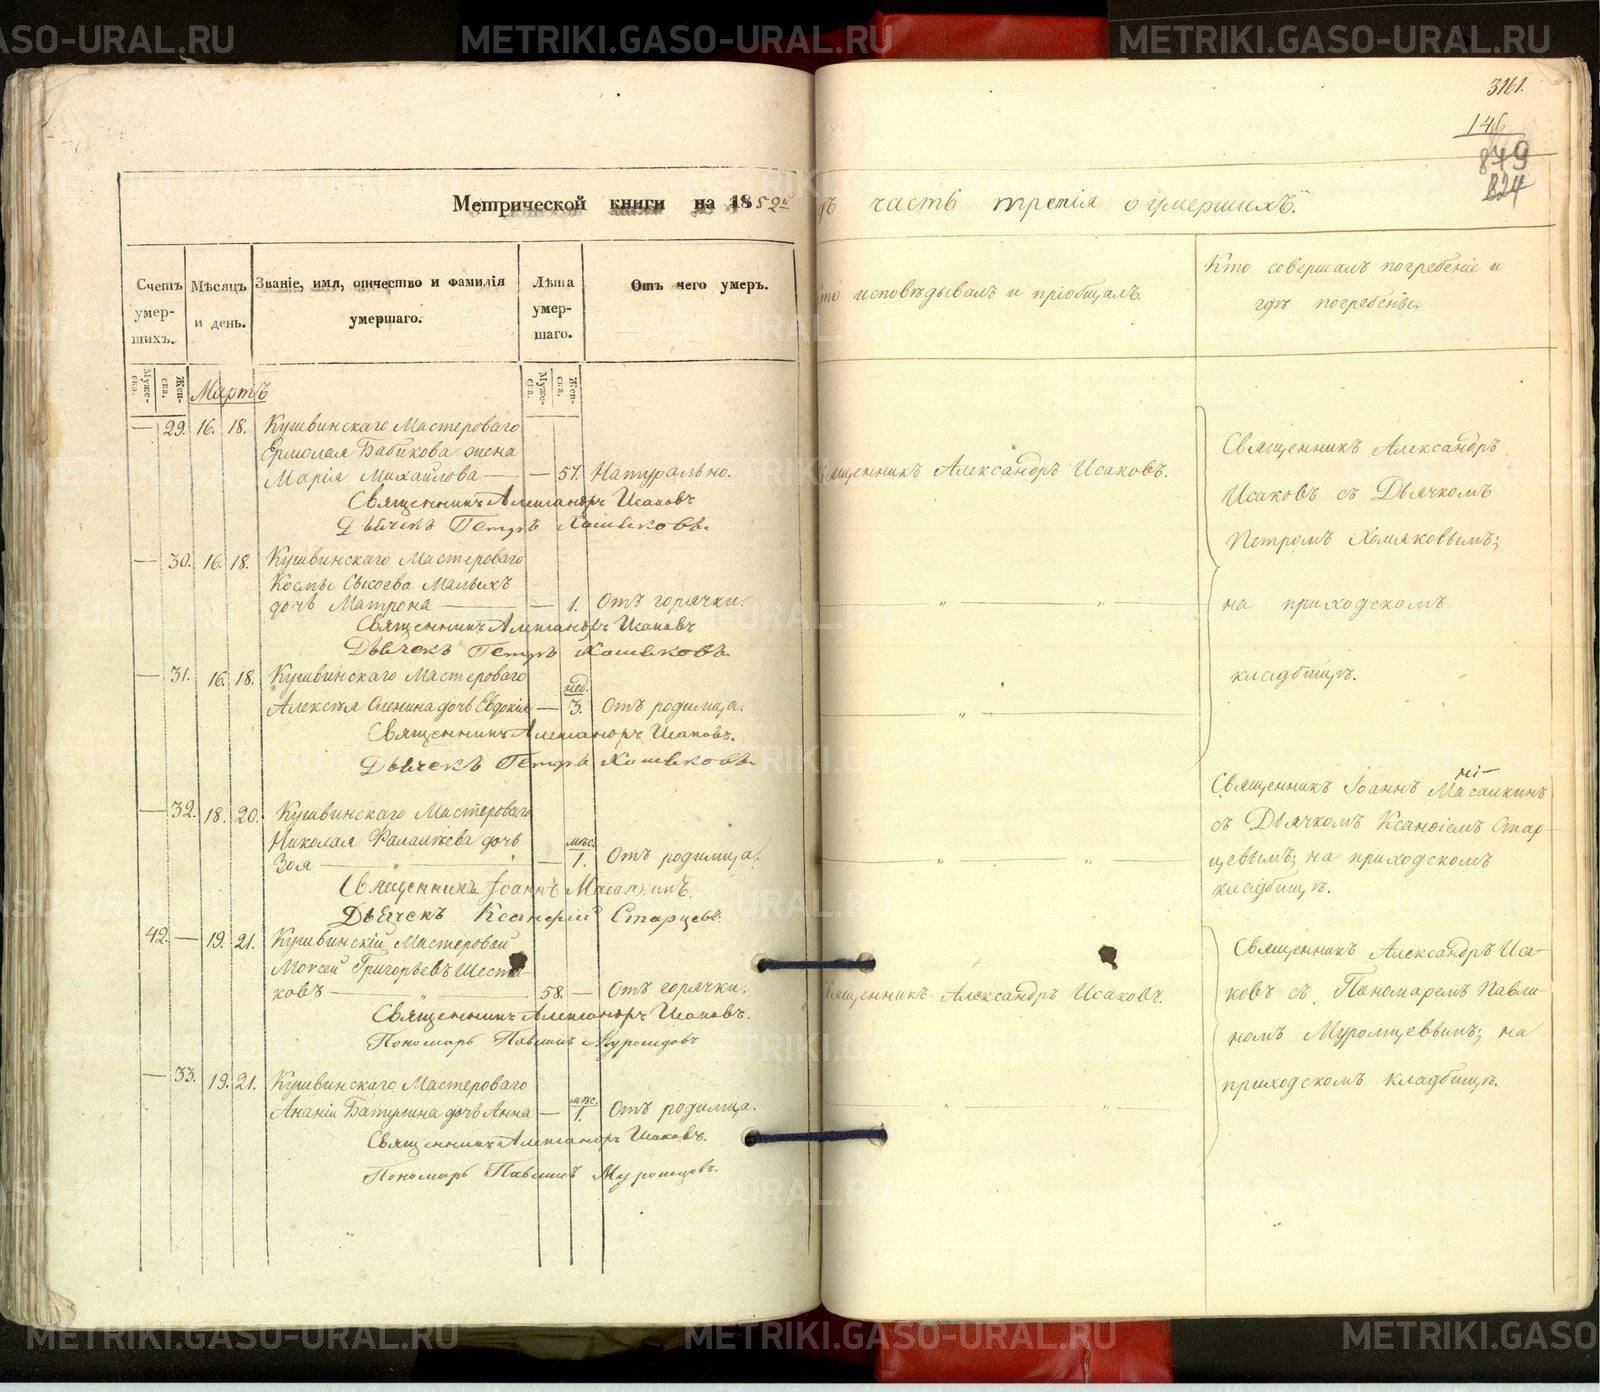 METRIKI.GASO-URAL.RU
3161.
146
879
824
Метрической книги на 1852й
годъ часть третія о умершихъ.
Счетъ умер-шихъ.
Мѣсяцъ и день.
Званіе, имя, отчество и фамилія умершаго.
Лѣта умер-шаго.
Отъ чего умеръ.
Кто исповѣдывалъ и пріобщалъ.
Кто совершалъ погребеніе и гдѣ погребены.
Муже-ска.
Жен-ска.
Муже-ска.
Жен-ска.
Мартъ
— 29. 16. 18. Кушвинскаго Мастероваго
Ермолая Бабикова жена
Марія Михайлова — — 57. Натурально.
Священникъ Александръ Исаковъ
Дьячекъ Петръ Хомяковъ.
Священникъ Александръ Исаковъ.
Священникъ Александръ
Исаковъ съ Дьячкомъ
Петромъ Хомяковымъ;
на приходскомъ
кладбищѣ.
— 30. 16. 18. Кушвинскаго Мастероваго
Косьмы Сысоева Малыхъ
дочь Матрона — — 1. Отъ горячки.
Священникъ Александръ Исаковъ
Дьячекъ Петръ Хомяковъ.
— 31. 16. 18. Кушвинскаго Мастероваго
Алексѣя Оленина дочь Евдокія — нед. 3. Отъ родимца.
Священникъ Александръ Исаковъ.
Дьячекъ Петръ Хомяковъ
— 32. 18. 20. Кушвинскаго Мастероваго
Николая дочь
Зоя — — мѣс. 1. Отъ родимца.
Священникъ Іоаннъ Масалкинъ.
Дьячекъ Ксанфій Старцевъ.
Священникъ Іоаннъ Масалкинъ
съ Дьячкомъ Ксанфіемъ Стар-
цевымъ; на приходскомъ
кладбищѣ.
42. — 19. 21. Кушвинскій Мастеровой
Моисей Григорьевъ Шеста-
ковъ — 58. — Отъ горячки.
Священникъ Александръ Исаковъ.
Пономарь Павлинъ Муромцовъ
Священникъ Александръ Исаковъ.
Священникъ Александръ Иса-
ковъ съ Пономаремъ Павли-
номъ Муромцевымъ; на
приходскомъ кладбищѣ.
— 33. 19. 21. Кушвинскаго Мастероваго
Ананіи Батурина дочь Анна — мѣс. 1. Отъ родимца.
Священникъ Александръ Исаковъ.
Пономарь Павлинъ Муромцовъ.